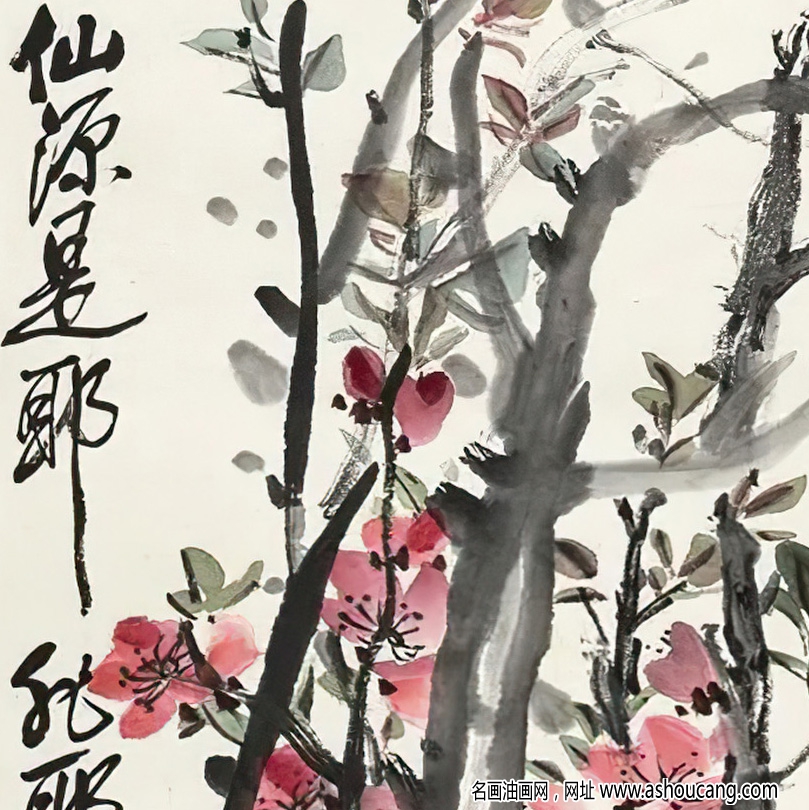 仙源是耶非耶
名画油画网，网址 www.ashoucang.com